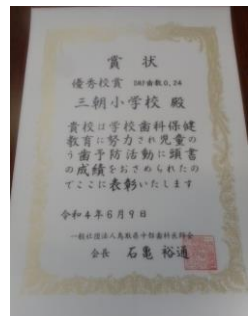 賞状
優秀校賞 DMF歯数0.24
三朝小学校 殿
貴校は学校歯科保健
教育に努力され児童の
う歯予防活動に頭書
の成績をおさめられたの
でここに表彰いたします
令和4年6月9日
一般社団法人鳥取県中部歯科医師会
会長 石亀 裕通